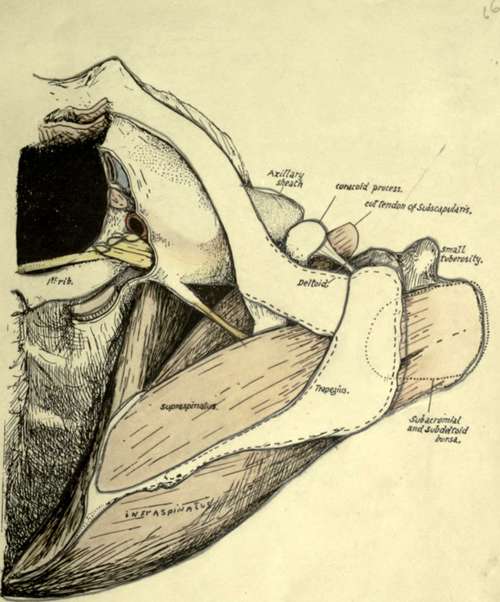 16
Axillary
sheath
coracoid process.
cut tendon of Subscapularis.
small
tuberosity.
1st rib.
Deltoid.
Trapezius.
Supraspinatus.
Subacromial
and Subdeltoid
bursa.
INFRASPINATUS